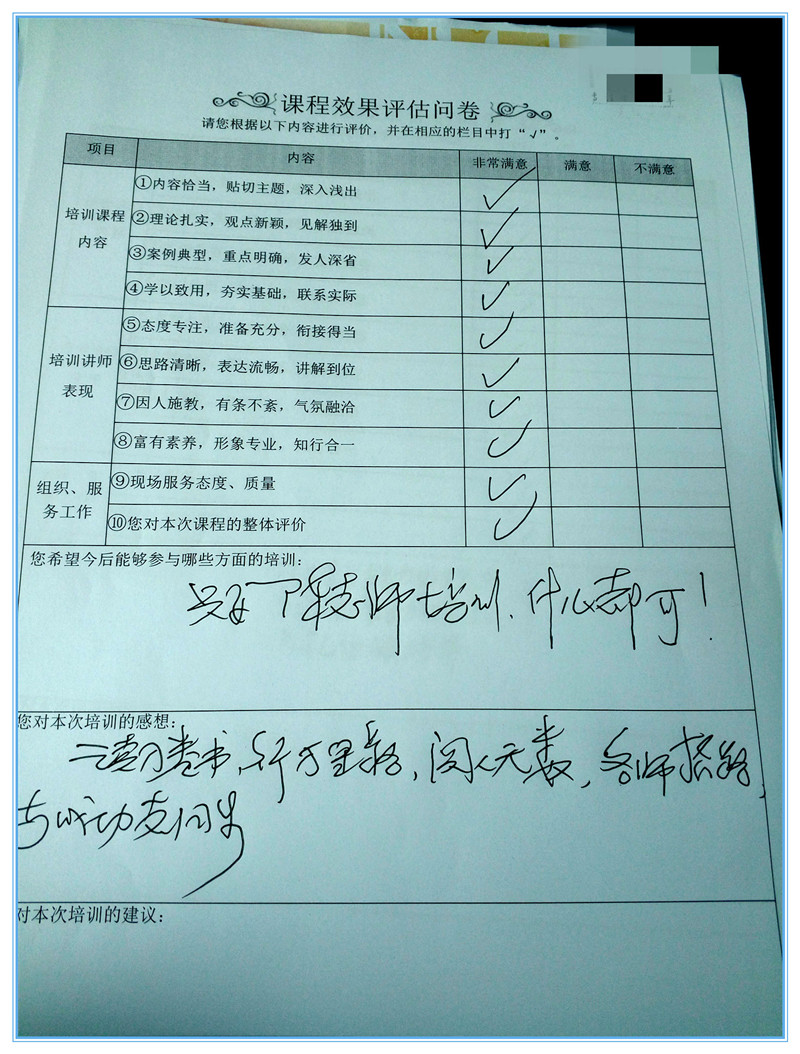 课程效果评估问卷
请您根据以下内容进行评价，并在相应的栏目中打“√”。
项目 内容 非常满意 满意 不满意
培训课程内容
①内容恰当，贴切主题，深入浅出 ✓
②理论扎实，观点新颖，见解独到 ✓
③案例典型，重点明确，发人深省 ✓
④学以致用，夯实基础，联系实际 ✓
培训讲师表现
⑤态度专注，准备充分，衔接得当 ✓
⑥思路清晰，表达流畅，讲解到位 ✓
⑦因人施教，有条不紊，气氛融洽 ✓
⑧富有素养，形象专业，知行合一 ✓
组织、服务工作
⑨现场服务态度、质量 ✓
⑩您对本次课程的整体评价 ✓
您希望今后能够参与哪些方面的培训：
老师培训，什么都可！
您对本次培训的感想：
读万卷书，行万里路，阅人无数，名师指路，
与成功者同步
对本次培训的建议：